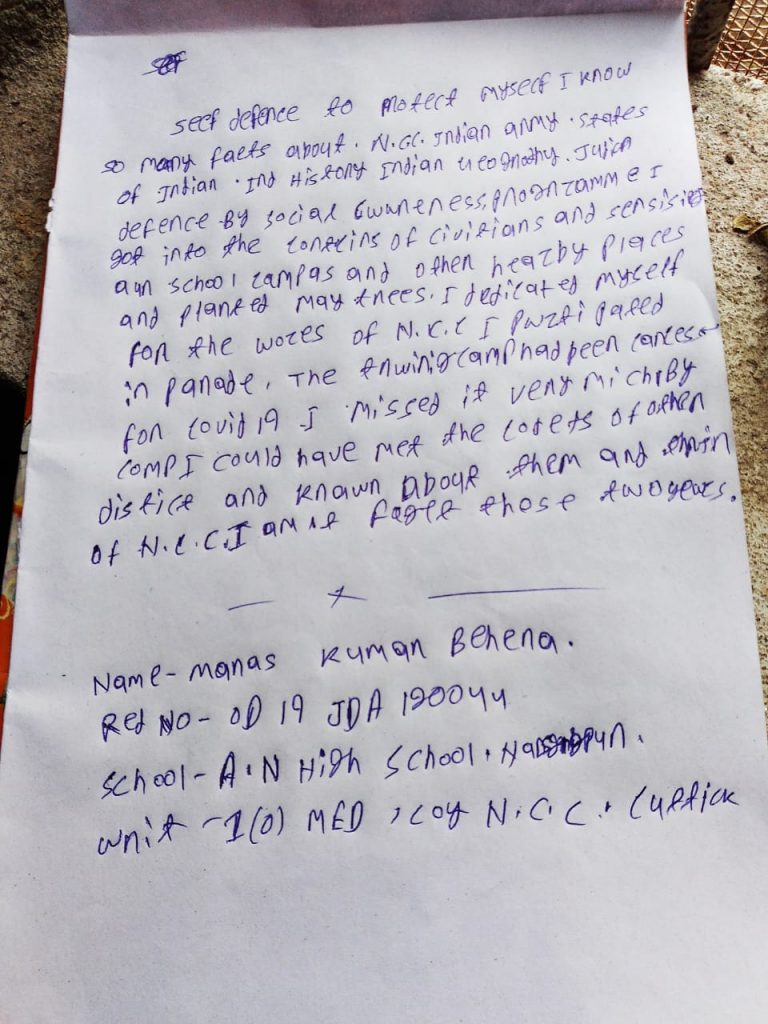 self defence to protect myself I know
so many facts about. N.C.C. Indian army. states
of Indian. Ind History Indian Geography.
defence By social awareness, programme I
got into the of civilians and
aun school campas and other nearby places
and planted may trees. I dedicated myself
for the works of N.C.C I partipated
in parade. The camp had been
for covid 19 I missed it very mich. By
comp I could have met the codets of other
distict and known about them and
of N.C.C. I am those two years.
Name - manas Kumar Behera.
Red No - OD 19 JDA 120044
School - A.N High School.
unit - 1(0) MED, coy N.C.C. Cuttick